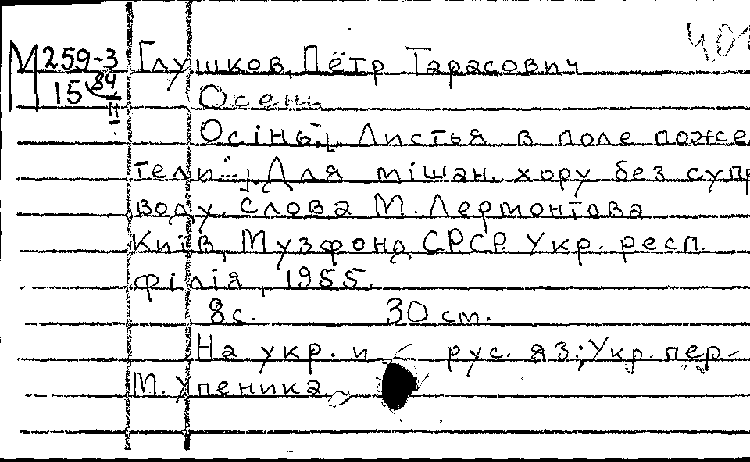 401
М 259-3 Глушков, Пётр Тарасович
15 84 Осень
II
Осінь. [Листья в поле пожел
тели...]. Для мішан. хору без супр
воду. Слова М. Лермонтова
Київ, Музфонд СРСР. Укр. респ.
філія, 1955.
8 с. 30 см.
На укр. и рус. яз; Укр. пер.
М. Упеника